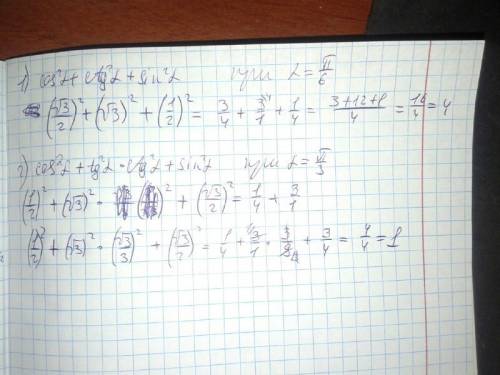 1) cos²α + ctg²α + sin²α при α = π/6
(√3/2)² + (√3)² + (1/2)² = 3/4 + 3/1 + 1/4 = (3+12+1)/4 = 16/4 = 4
2) cos²α + tg²α · ctg²α + sin²α при α = π/3
(1/2)² + (√3)² · + (√3/2)² = 1/4 + 3/1
(1/2)² + (√3)² · (√3/3)² + (√3/2)² = 1/4 + 3/1 · 3/9 + 3/4 = 4/4 = 1